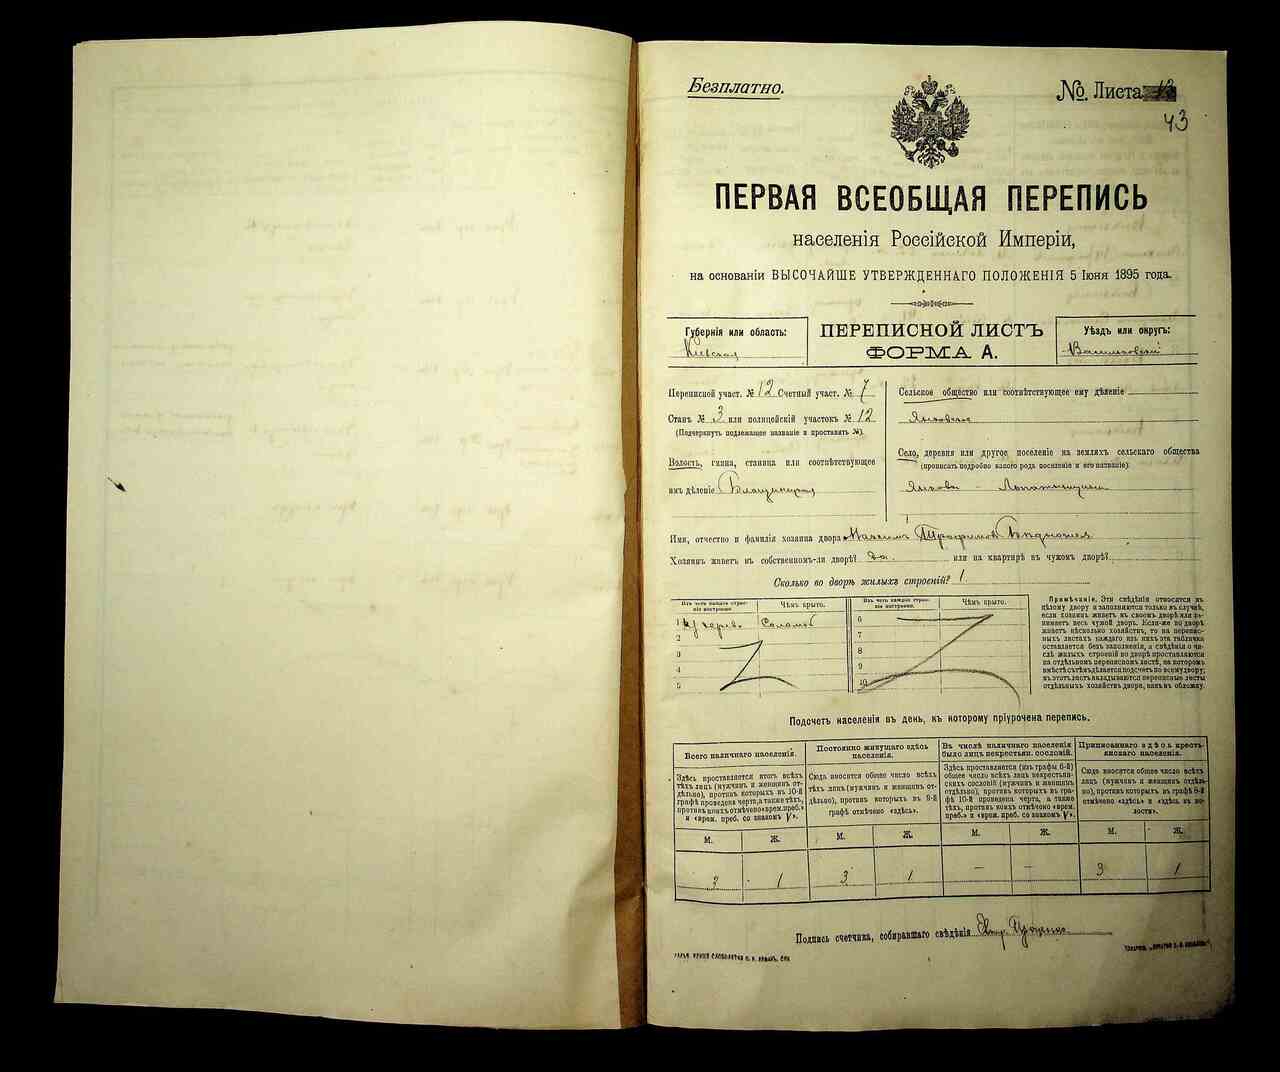 Безплатно.
№. Листа
43
ПЕРВАЯ ВСЕОБЩАЯ ПЕРЕПИСЬ
населенія Россійской Имперіи,
на основаніи ВЫСОЧАЙШЕ УТВЕРЖДЕННАГО ПОЛОЖЕНІЯ 5 Іюня 1895 года.
Губернія или область:
Кіевская
ПЕРЕПИСНОЙ ЛИСТЪ
ФОРМА А.
Уѣздъ или округъ:
Васильковскій
Переписной участ. № 12 Счетный участ. № 7
Станъ № 3 или полицейскій участокъ № 12
(Подчеркнуть подлежащее названіе и проставить №).
Волость, гмина, станица или соотвѣтствующее
имъ дѣленіе
Сельское общество или соотвѣтствующее ему дѣленіе
Село, деревня или другое поселеніе на земляхъ сельскаго общества
(прописать подробно какого рода поселеніе и его названіе):
Имя, отчество и фамилія хозяина двора Максимъ Трофимовъ
Хозяинъ живетъ въ собственномъ-ли дворѣ? да. или на квартирѣ въ чужомъ дворѣ?
Сколько во дворѣ жилыхъ строеній? 1
Изъ чего каждое строе-
ніе построено.
Чѣмъ крыто.
1
2
3
4
5
Изъ чего каждое строе-
ніе построено.
Чѣмъ крыто.
6
7
8
9
10
Примѣчаніе. Эти свѣдѣнія относятся къ
цѣлому двору и заполняются только въ случаѣ,
если хозяинъ живетъ въ своемъ дворѣ или за-
нимаетъ весь чужой дворъ. Если-же во дворѣ
живетъ нѣсколько хозяйствъ, то на перепис-
ныхъ листахъ каждаго изъ нихъ эта табличка
оставляется безъ заполненія, а свѣдѣнія о чи-
слѣ жилыхъ строеній во дворѣ проставляются
на отдѣльномъ переписномъ листѣ, на которомъ
вмѣстѣ съ тѣмъ дѣлается подсчетъ по всему двору;
въ этотъ листъ вкладываются переписные листы
отдѣльныхъ хозяйствъ двора, какъ въ обложку.
Подсчетъ населенія въ день, къ которому пріурочена перепись.
Всего наличнаго населенія.
Здѣсь проставляется итогъ всѣхъ
тѣхъ лицъ (мужчинъ и женщинъ от-
дѣльно), противъ которыхъ въ 10-й
графѣ проведена черта, а также тѣхъ,
противъ коихъ отмѣчено «врем. преб.»
и «врем. преб. со знакомъ V».
М. Ж.
3 1
Постоянно живущаго здѣсь
населенія.
Сюда вносится общее число всѣхъ
тѣхъ лицъ (мужчинъ и женщинъ от-
дѣльно), противъ которыхъ въ 9-й
графѣ отмѣчено «здѣсь».
М. Ж.
3 1
Въ числѣ наличнаго населенія
было лицъ некрестьян. сословій.
Здѣсь проставляется (изъ графы 6-й)
общее число всѣхъ лицъ некрестьян-
скихъ сословій (мужчинъ и женщинъ
отдѣльно), противъ которыхъ въ гра-
фѣ 10-й проведена черта, а также
тѣхъ, противъ коихъ отмѣчено «врем.
преб.» и «врем. преб. со знакомъ V».
М. Ж.
– –
Приписаннаго здѣсь кресть-
янскаго населенія.
Сюда вносится общее число всѣхъ
лицъ (мужчинъ и женщинъ отдѣль-
но), противъ которыхъ въ графѣ 8-й
отмѣчено «здѣсь» и «здѣсь въ во-
лости».
М. Ж.
3 1
Подпись счетчика, собиравшаго свѣдѣнія